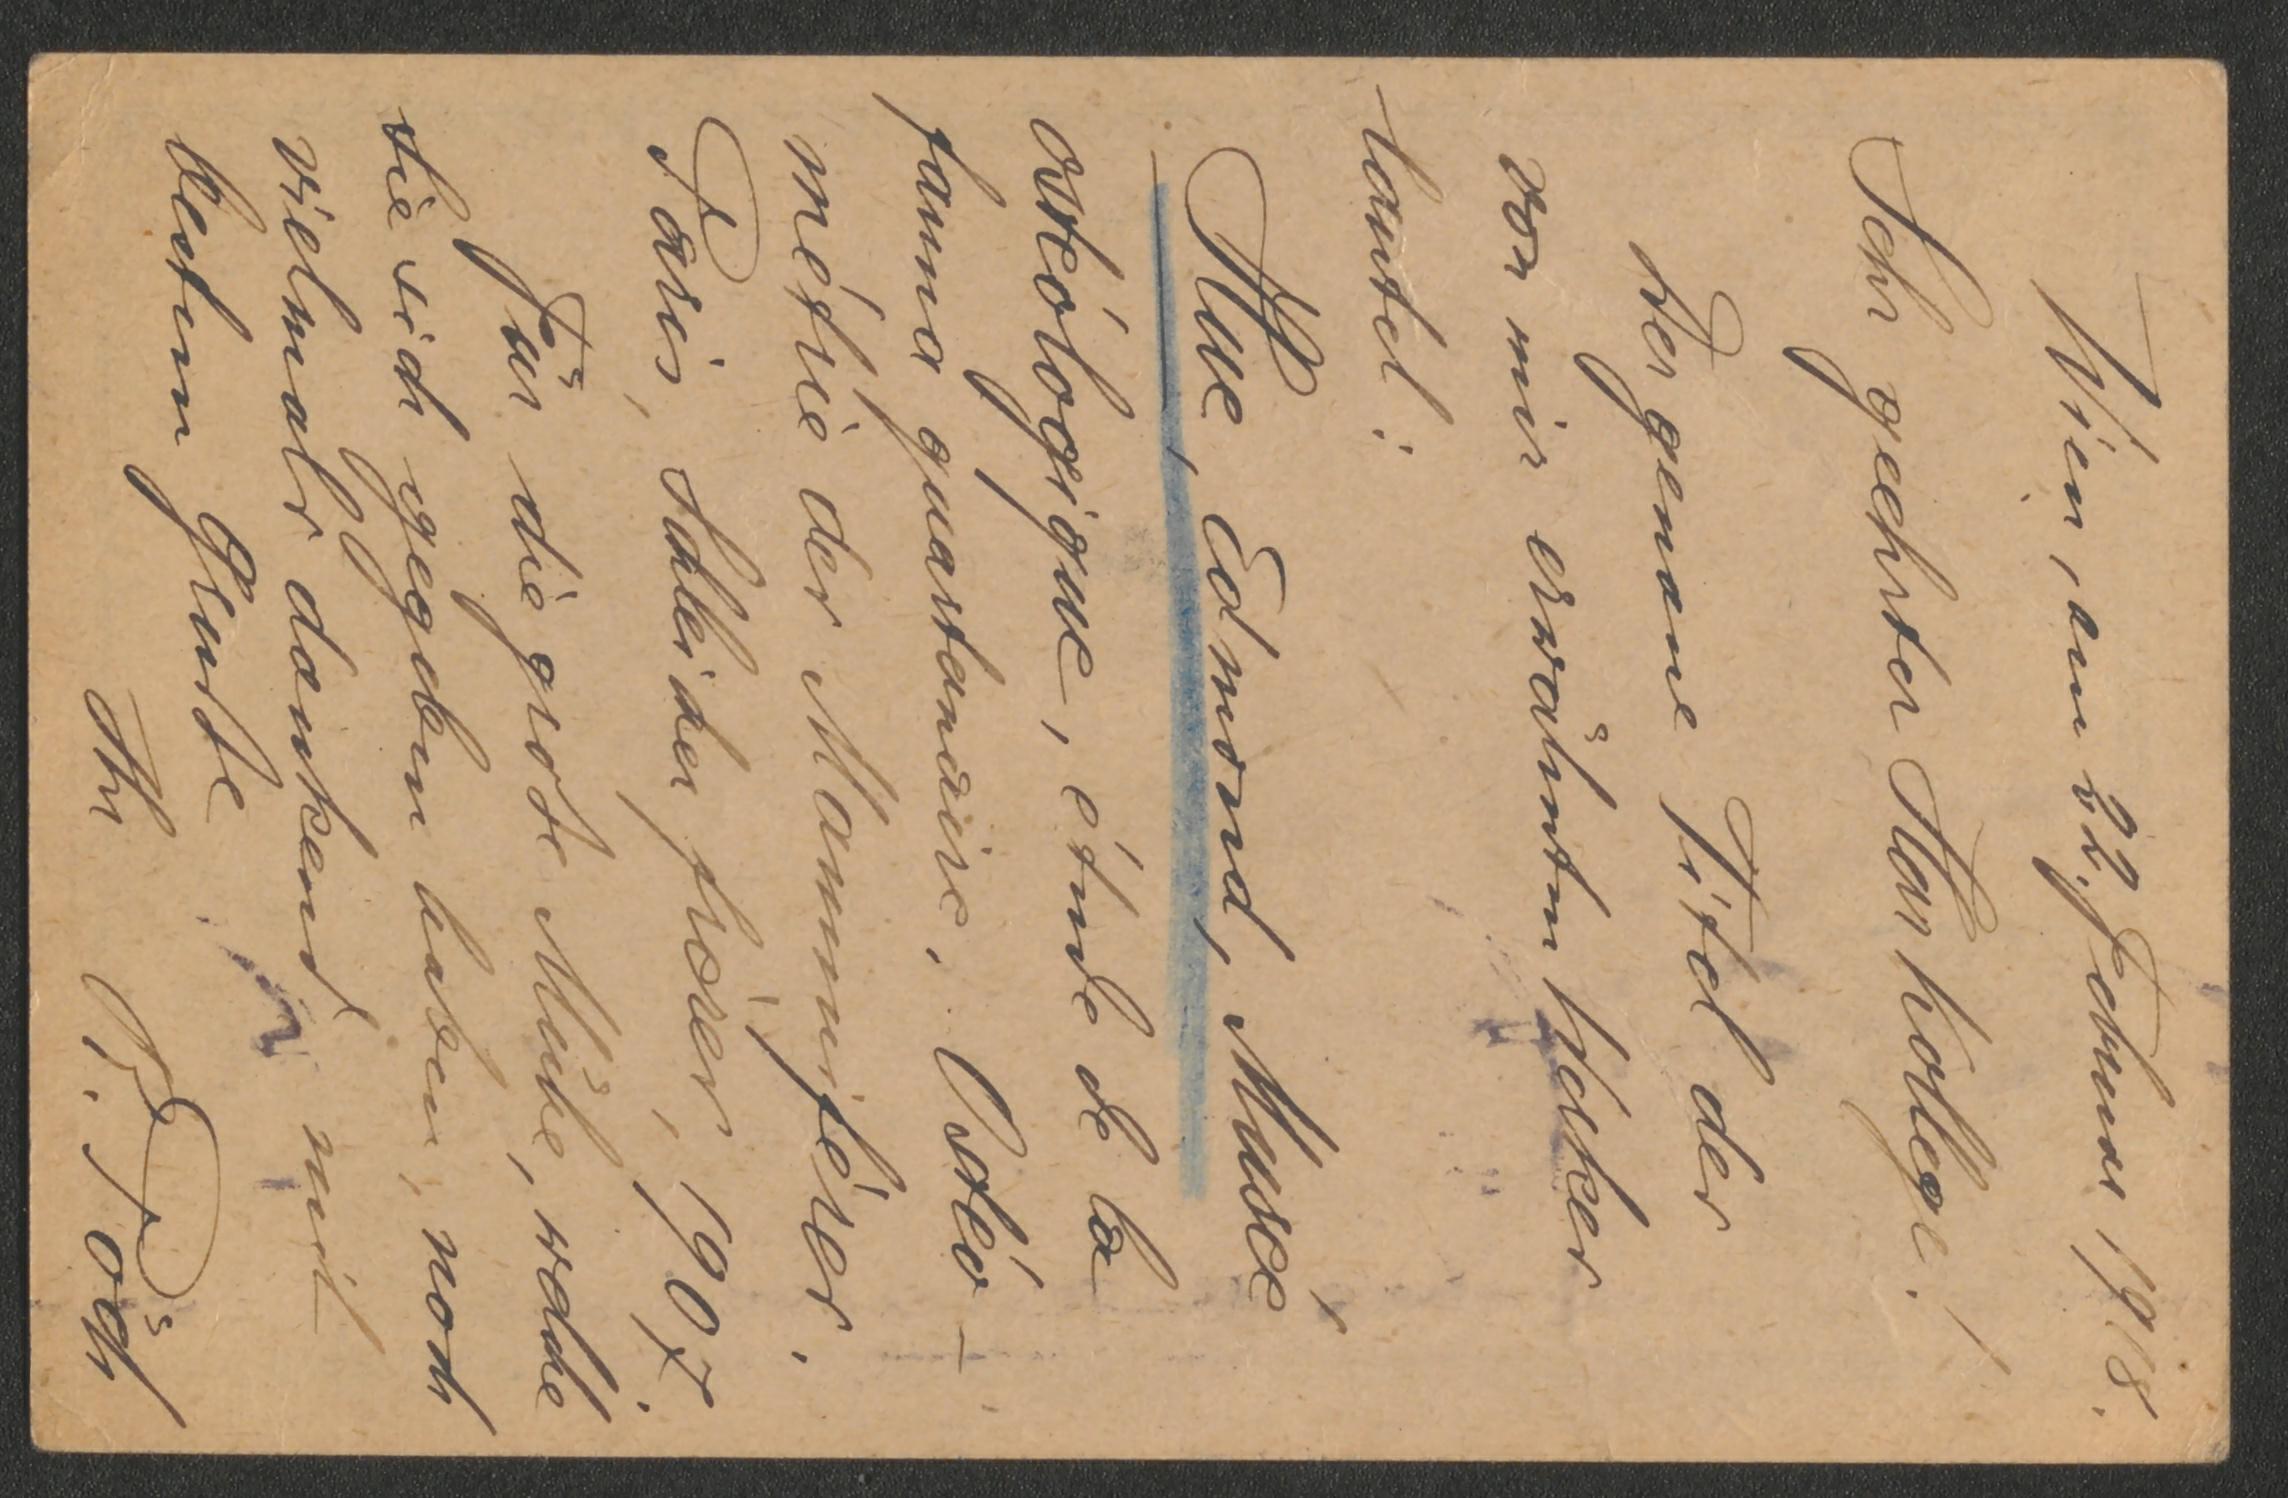 Wien, am 22. Februar 1918.
Sehr geehrter Herr Kollege!
Der genaue Titel der
von mir erwähnten Bücher
lautet:
Hue, Edmond, Musée
ostéologique, étude de la
fauna quartanaire. Ostéo-
métrie der Mammifères.
Paris, Schleicher frères, 1907.
Für die grosse Mühe, welche
sie sich gegeben haben, noch
vielmals dankend, mit
bestem Grusse
Ihr R. Pöch